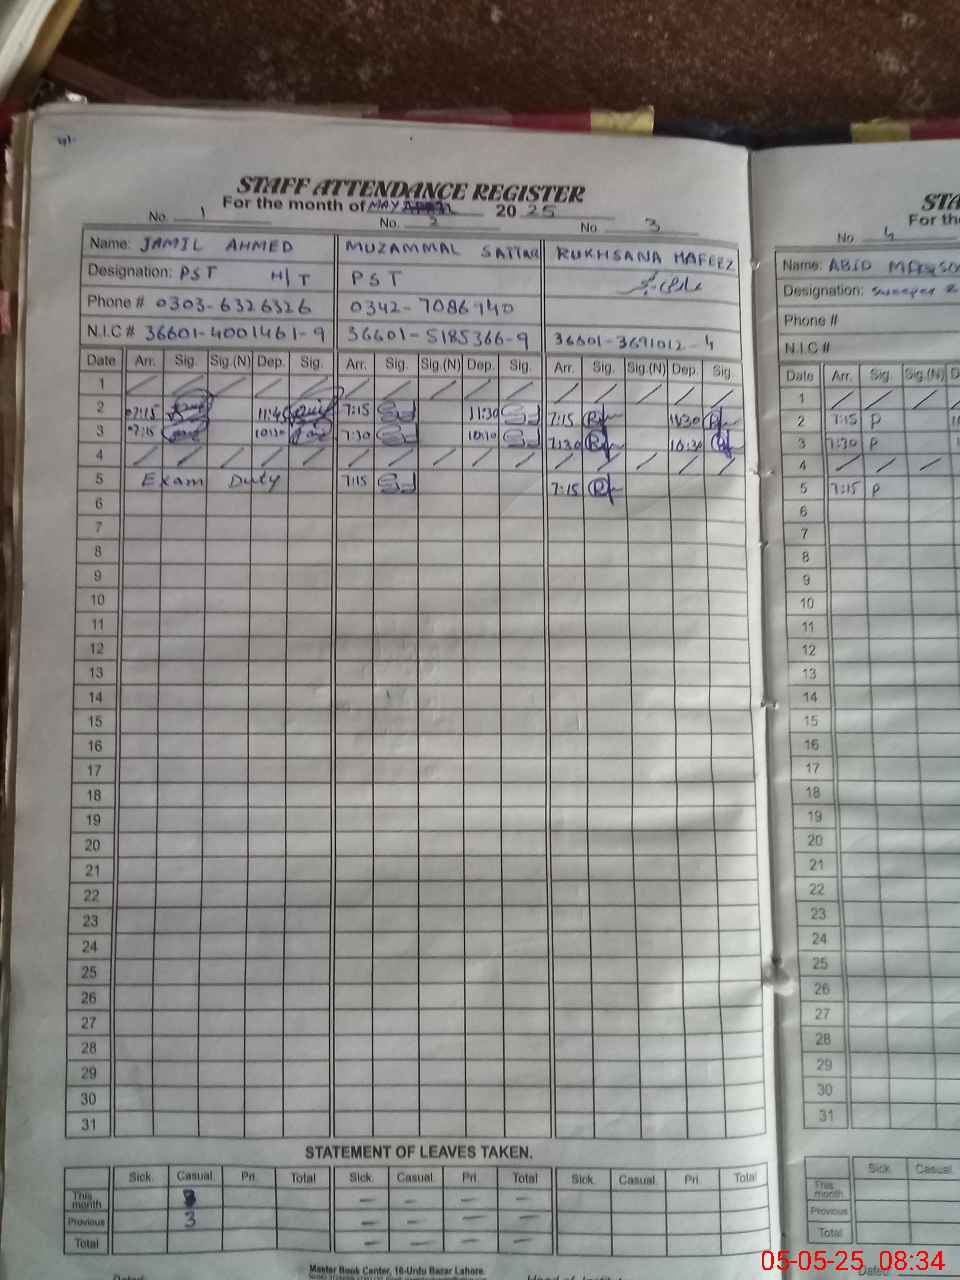 STAFF ATTENDANCE REGISTER
For the month of MAY 2025
No. 1 No. 2 No. 3
Name: JAMIL AHMED MUZAMMAL SATTAR RUKHSANA HAFEEZ
Designation: PST H/T PST
Phone # 0303-6326326 0342-7086940
N.I.C # 36601-4001461-9 36601-5185366-9 36601-3691012-4
Date Arr. Sig. Sig.(N) Dep. Sig. Arr. Sig. Sig.(N) Dep. Sig. Arr. Sig. Sig.(N) Dep. Sig.
1
2 7:15 11:40 7:15 11:30 7:15 11:30
3 7:15 10:30 7:30 10:30 7:30 10:30
4
5 Exam Duty 7:15 7:15
6
7
8
9
10
11
12
13
14
15
16
17
18
19
20
21
22
23
24
25
26
27
28
29
30
31
STATEMENT OF LEAVES TAKEN.
Sick. Casual. Pri. Total Sick. Casual. Pri. Total Sick. Casual. Pri. Total
This month
Previous 3
Total
Master Book Center, 16-Urdu Bazar Lahore.
STA
For th
No. 4
Name: ABID
Designation: Sweeper
Phone #
N.I.C #
Date Arr. Sig. Sig.(N)
1
2 7:15 P
3 7:30 P
4
5 7:15 P
6
7
8
9
10
11
12
13
14
15
16
17
18
19
20
21
22
23
24
25
26
27
28
29
30
31
Sick. Casual.
This month
Previous
Total
Dated
05-05-25 08:34